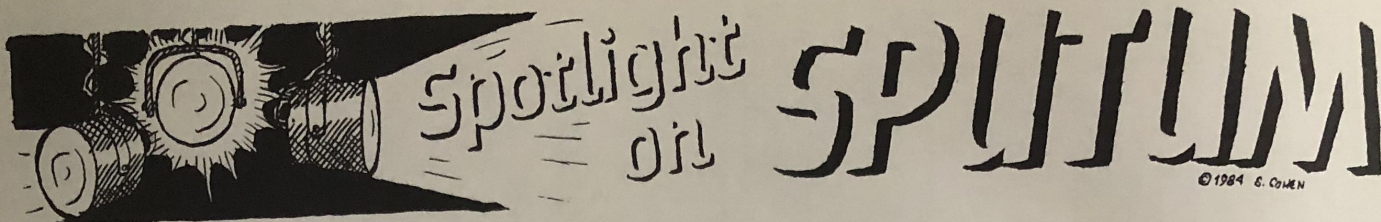 spotlight
on
SPUTUM
©1984 S. COHEN